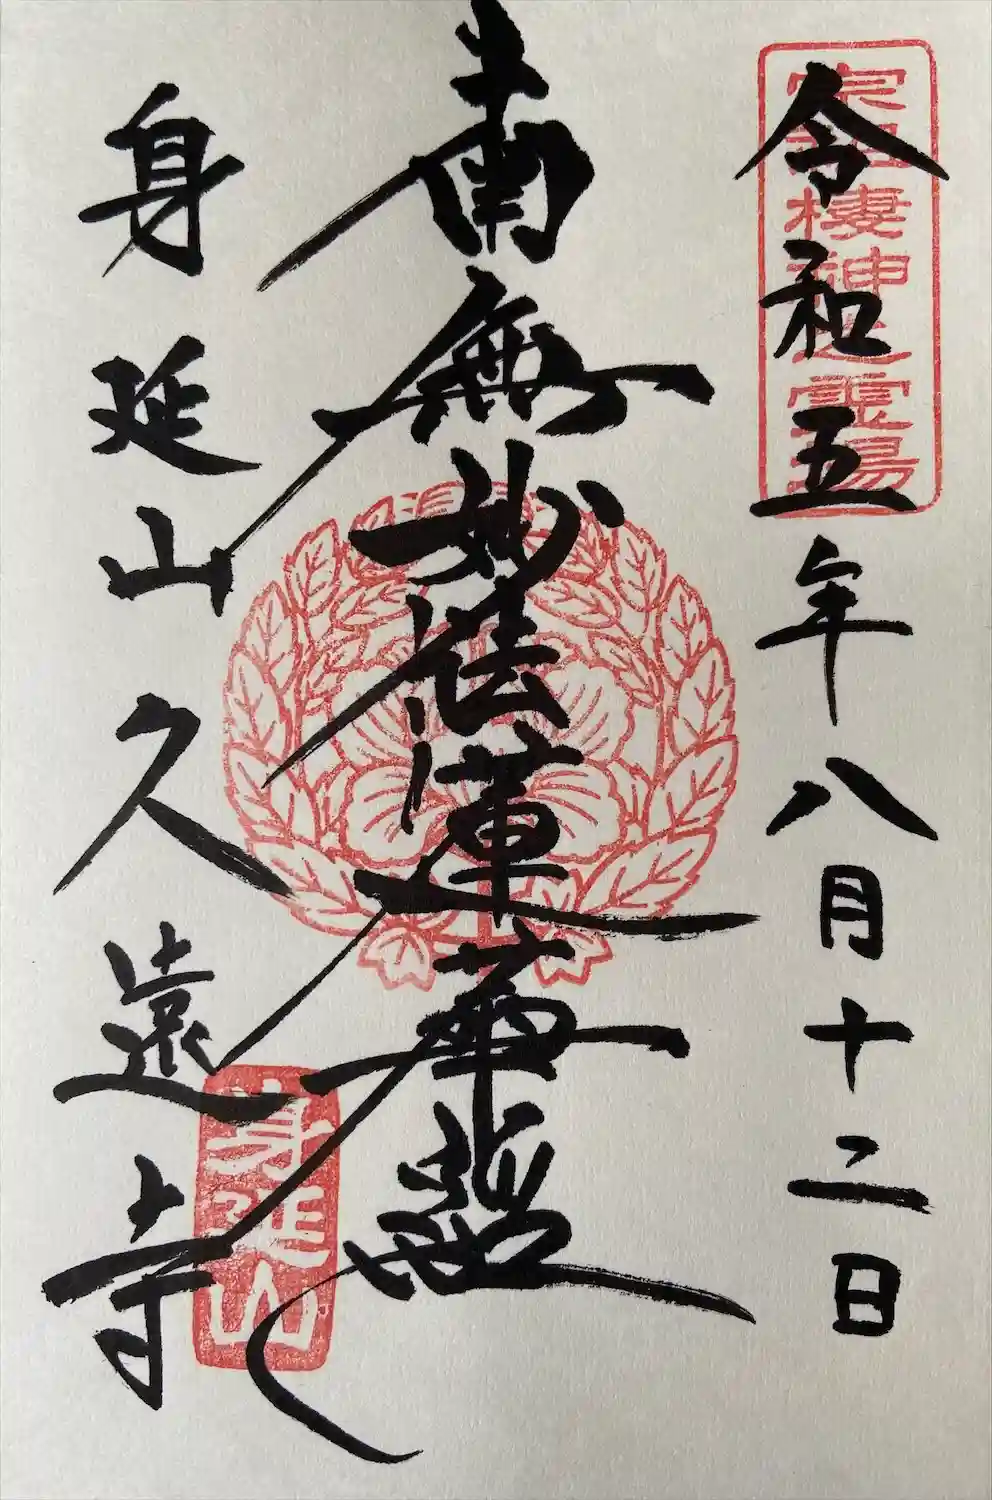 宗祖棲神之霊場
令和五年八月十二日
南無妙法蓮華経
身延山久遠寺
身延山